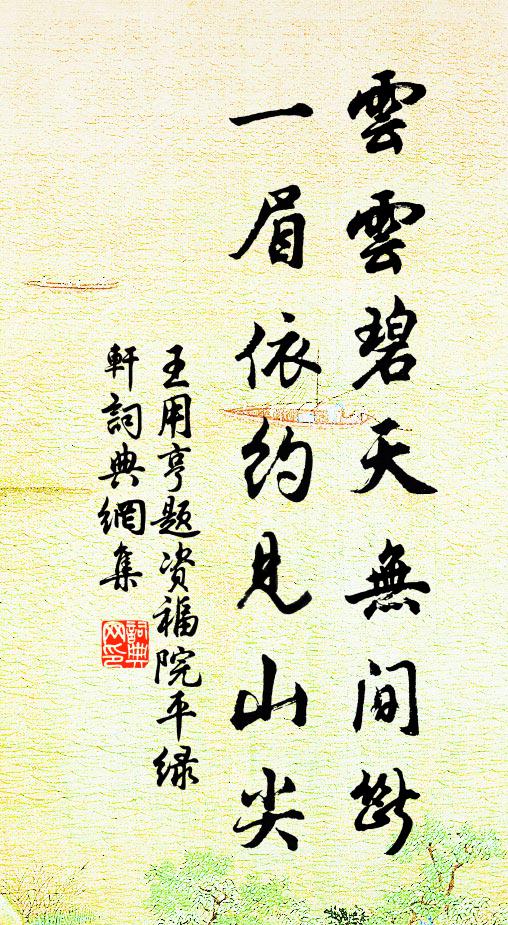 雲雲碧天無間斷
一眉依約見山尖
王用亨题资福院平绿
軒詞典網集
詞典
网印